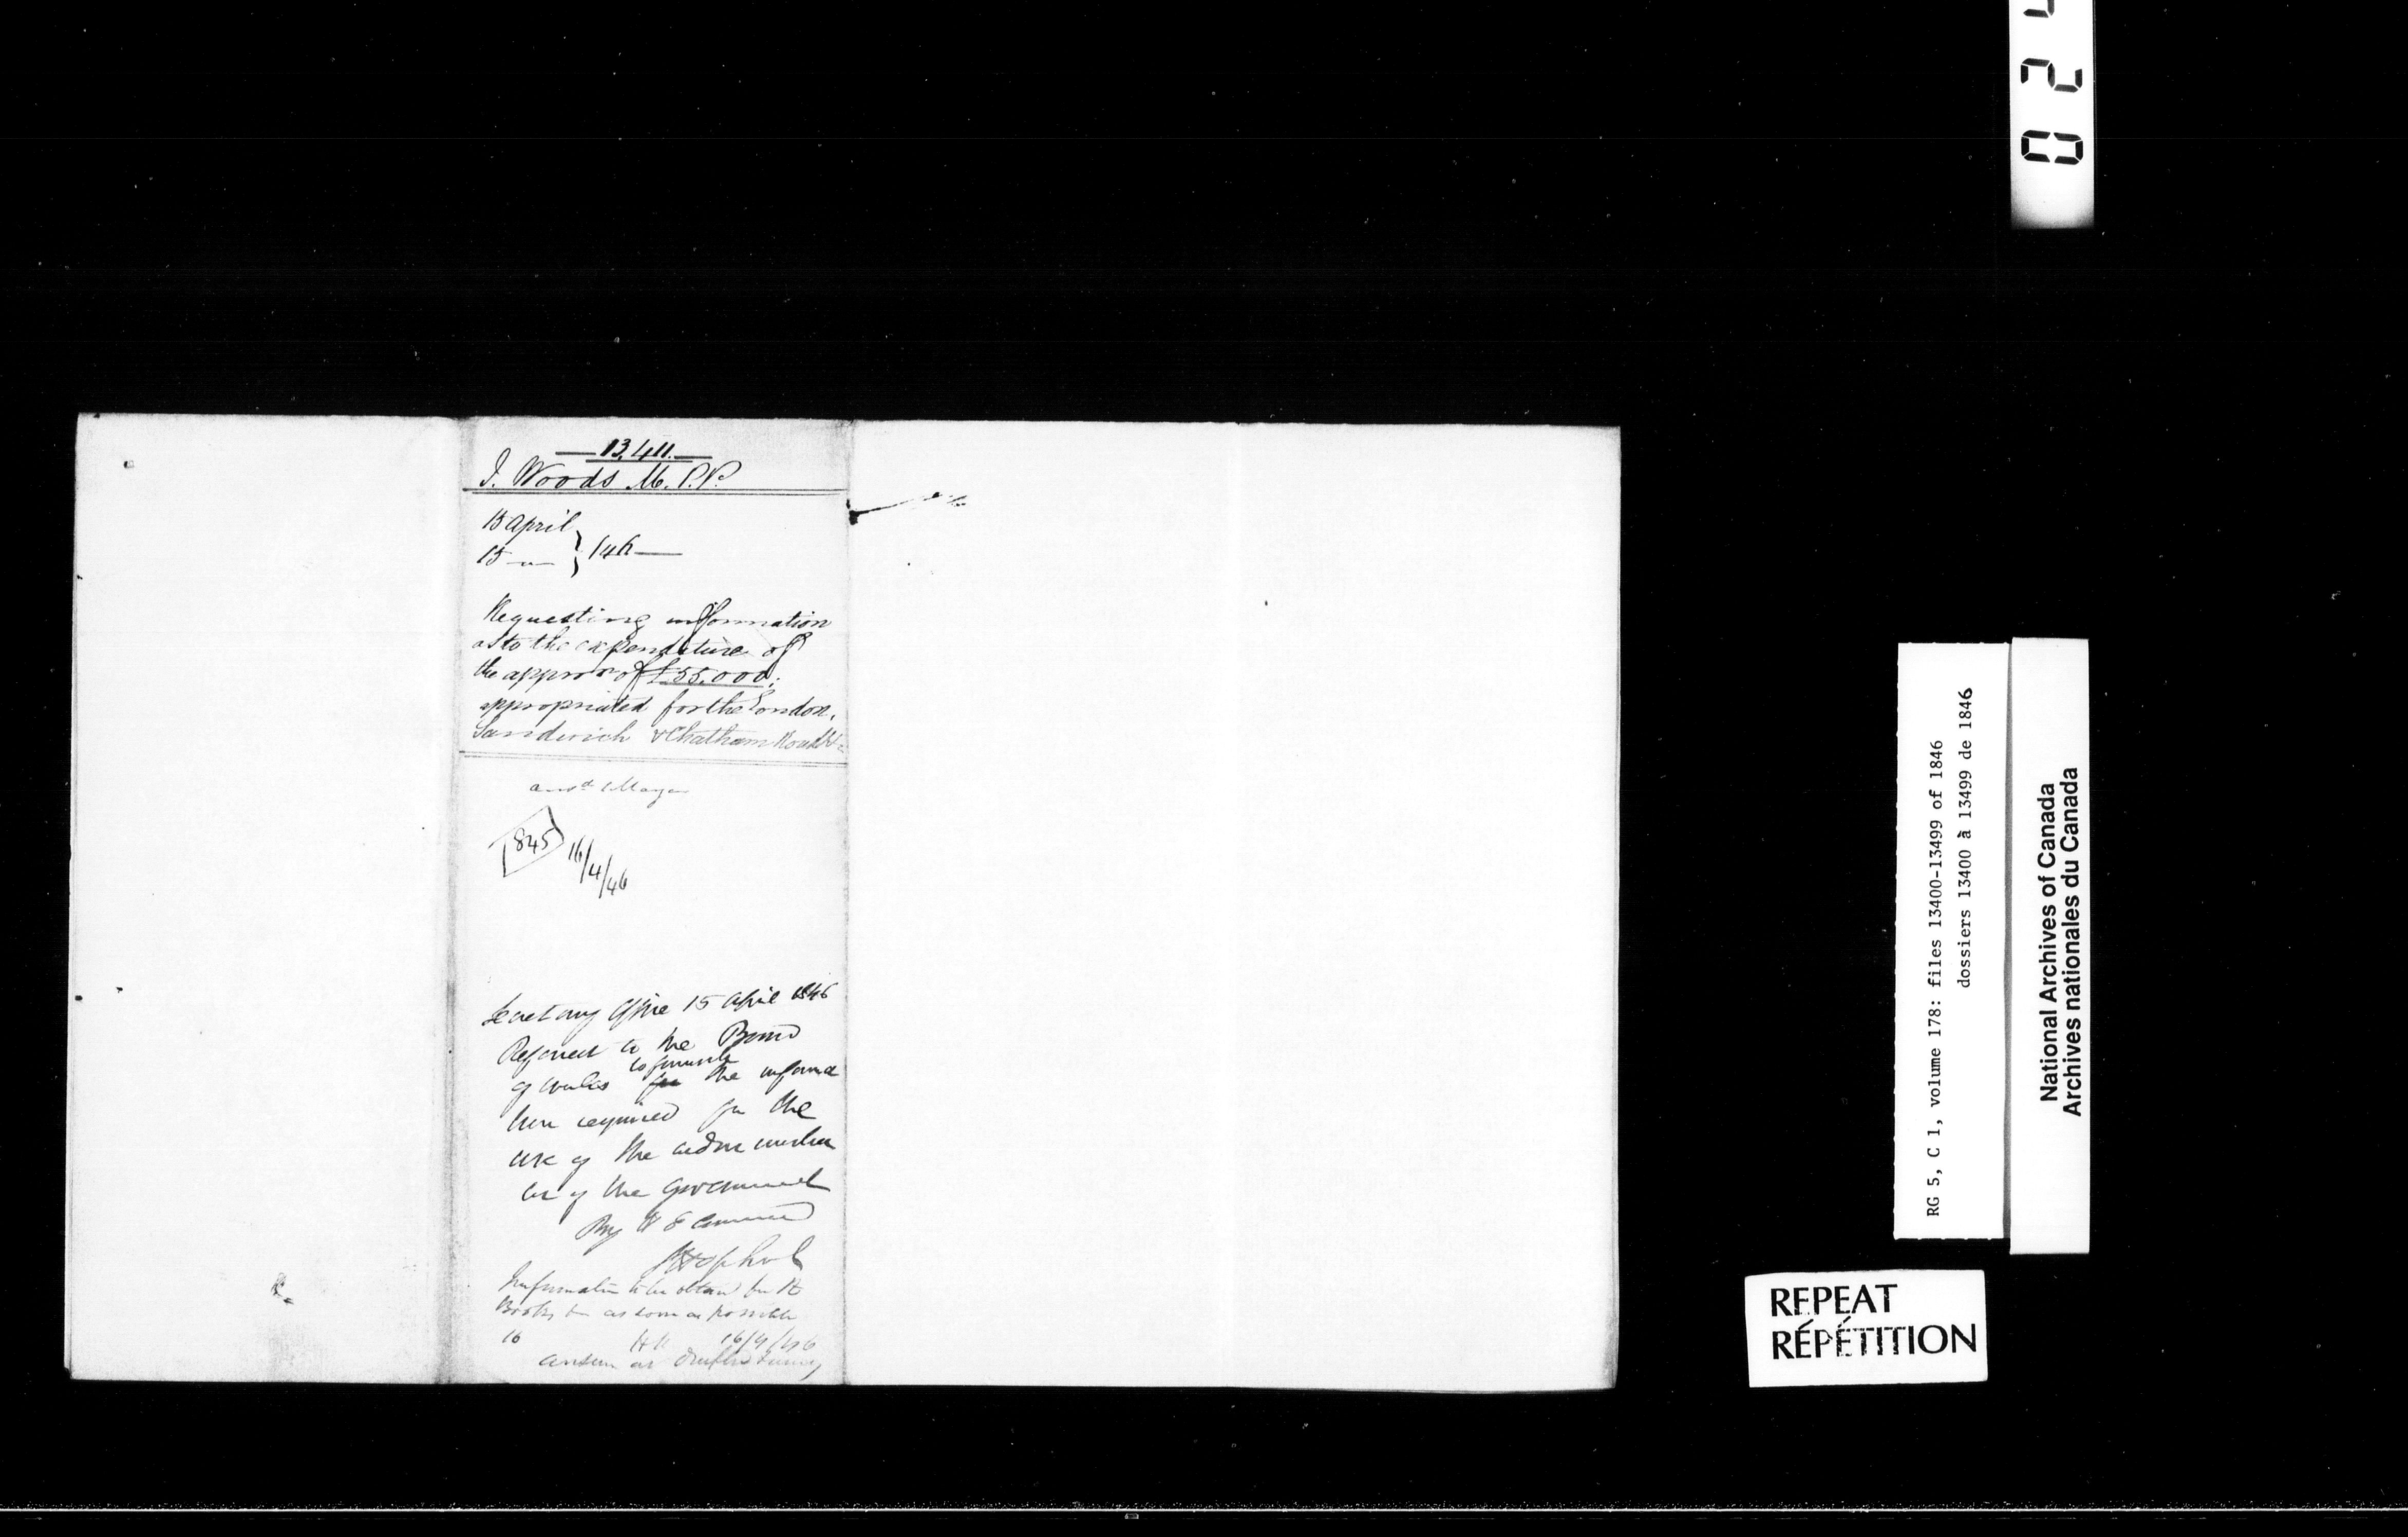 13,411.
J. Woods M.P.P.
13 April
15 — " — } /46 —
Requesting information
as to the expenditure of
the approp of £55,000;
appropriated for the London,
Sandwich & Chatham Road &c
ansd 1 May
1845
16/4/46
Secretary Office 15 April 1846
Referred to the Board
of works to furnish the informa
tion required for the
use of the administra
tion of the Government
By Command
Information to be obtain
Books as soon as possible
16 HK 16/4/46
answer as
0 2 4
RG 5, C 1, volume 178: files 13400-13499 of 1846
dossiers 13400 à 13499 de 1846
National Archives of Canada
Archives nationales du Canada
REPEAT
RÉPÉTITION